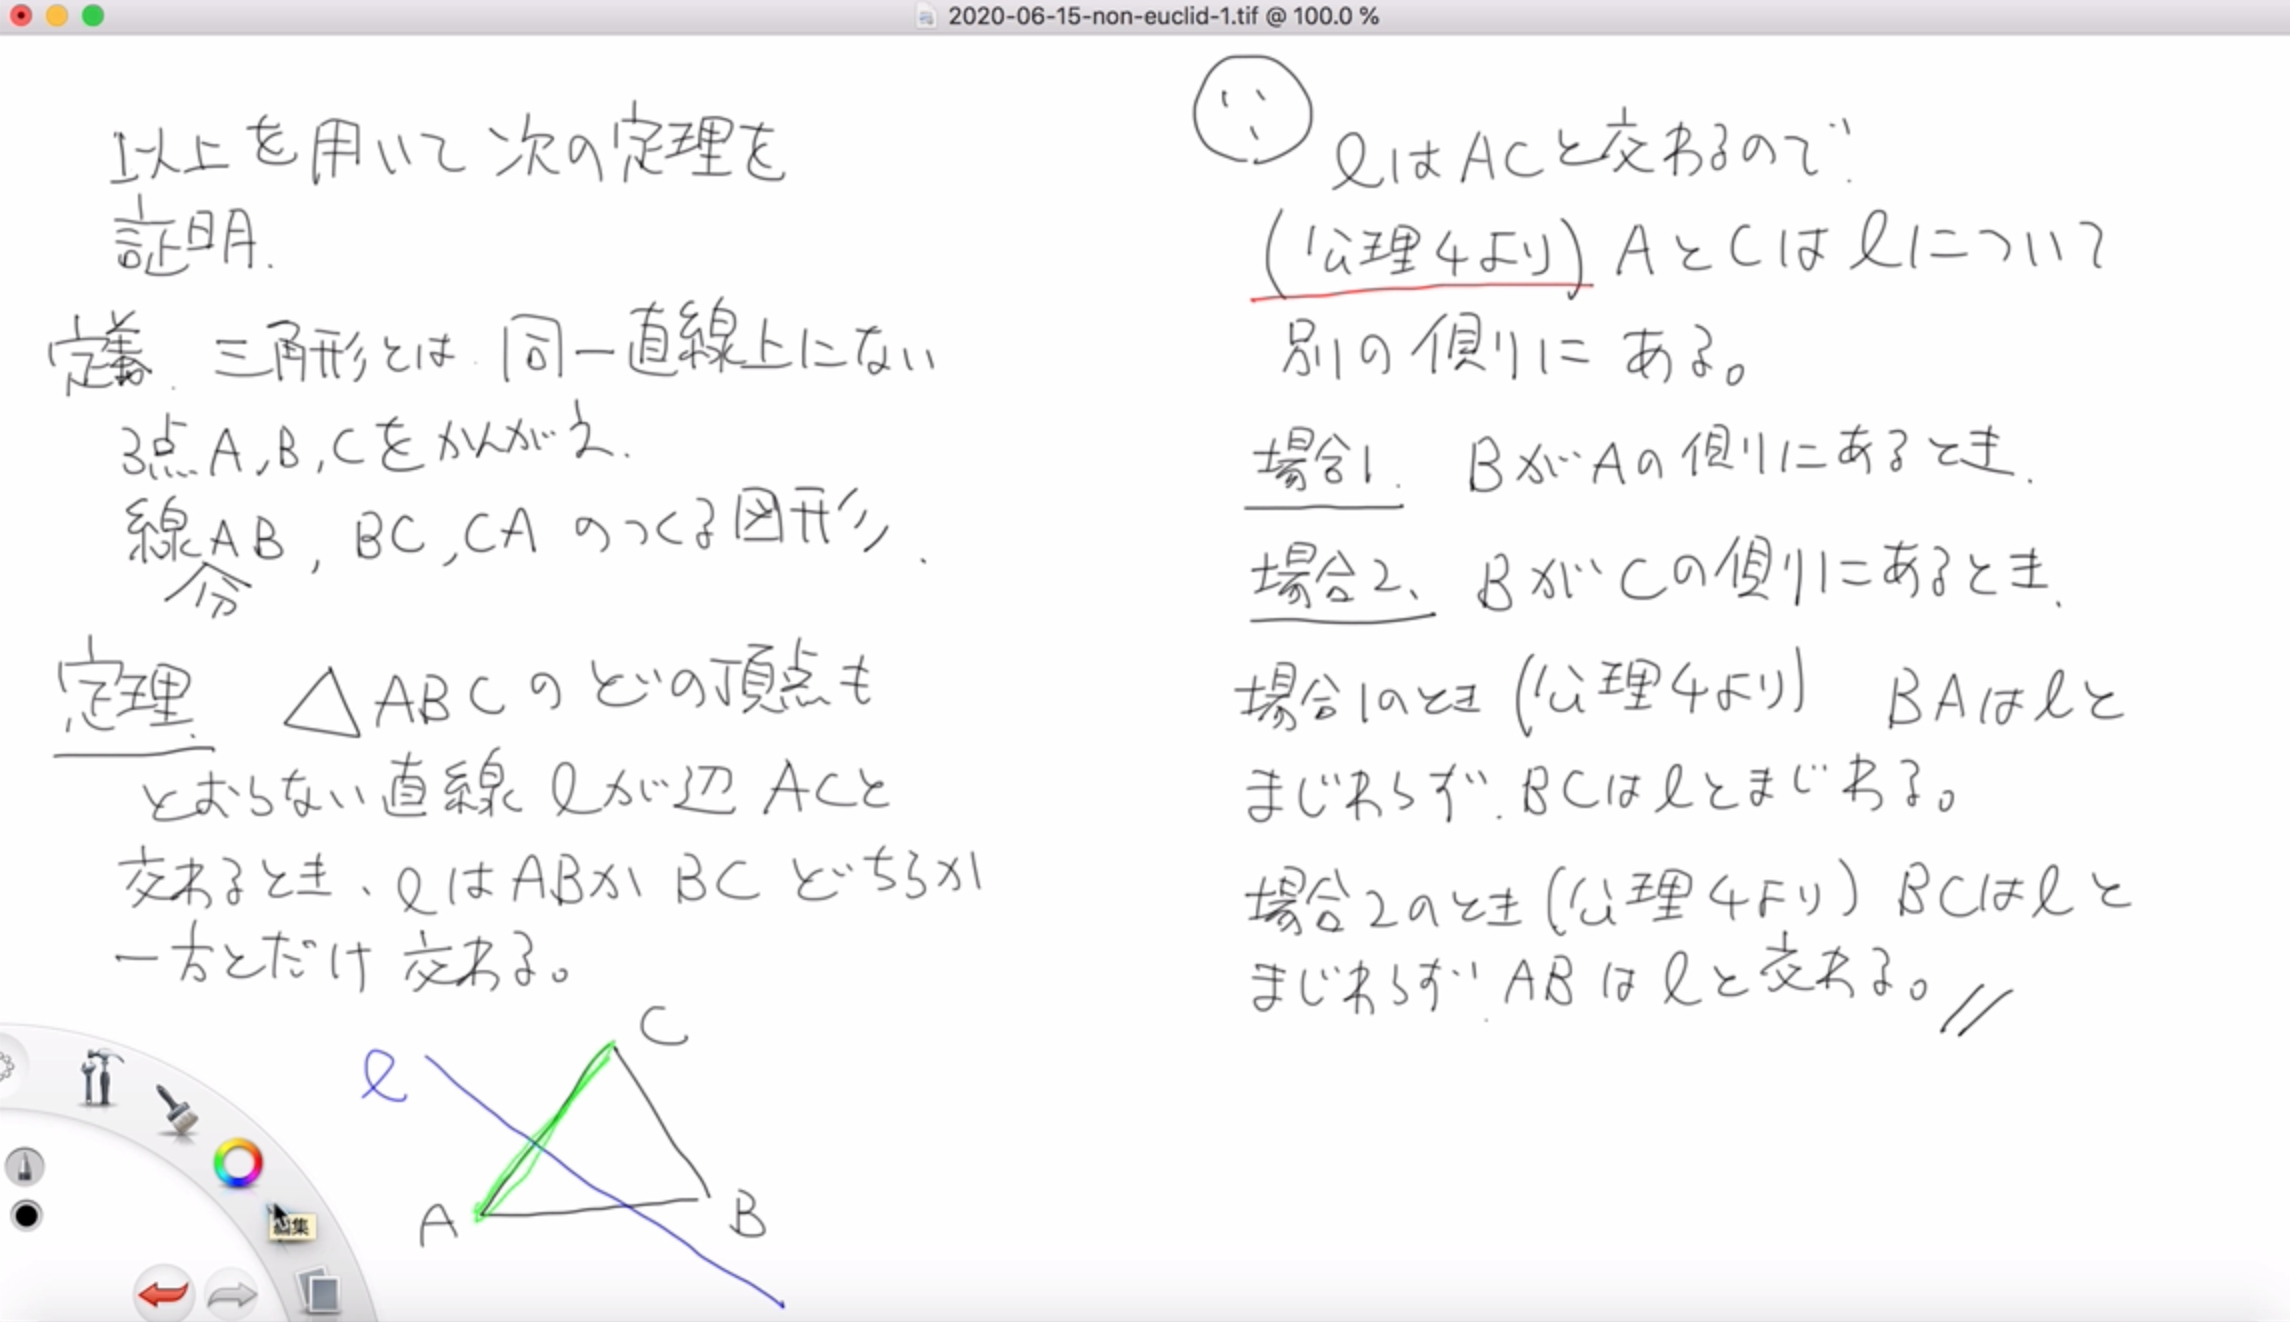 2020-06-15-non-euclid-1.tif @ 100.0 %
以上を用いて次の定理を
証明.
定義. 三角形とは. 同一直線上にない
3点A,B,Cをかんがえ.
線分AB, BC, CAのつくる図形.
定理. △ABCのどの頂点も
とおらない直線ℓが辺ACと
交わるとき、ℓはABかBCどちらか
一方とだけ交わる。
ℓ
C
A
B
編集
ℓはACと交わるので.
(公理4より) AとCはℓについて
別の側にある。
場合1. BがAの側にあるとき.
場合2、BがCの側にあるとき.
場合1のとき(公理4より) BAはℓと
まじわらず. BCはℓとまじわる。
場合2のとき(公理4より) BCはℓと
まじわらず. ABはℓと交わる。//